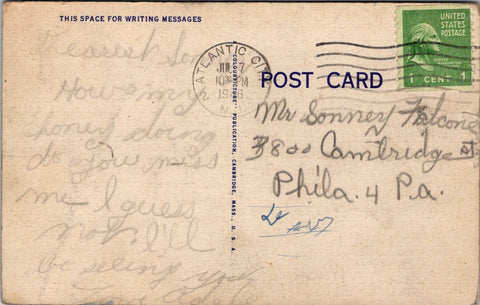 THIS SPACE FOR WRITING MESSAGES
Dearest Son
How's my
honey doing
do you miss
me I guess
not. I'll
be seeing you
Love
"COLOURPICTURE" PUBLICATION, CAMBRIDGE, MASS., U. S. A.
ATLANTIC CITY
JUL 7
PM
N
UNITED
STATES
POSTAGE
1 CENT 1
POST CARD
Mr Sonney Falcone
3800 Cambridge St
Phila. 4 Pa.